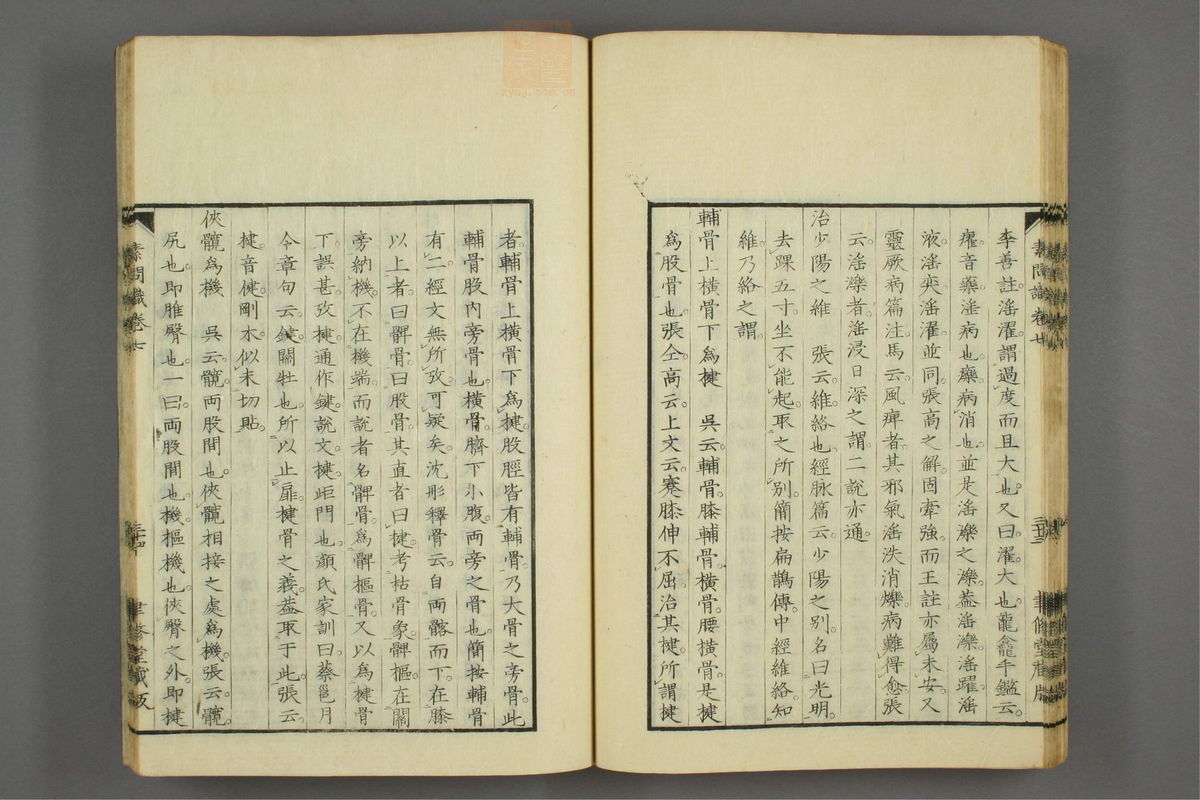 李善註滛濯謂過度而且大也又曰濯大也龍龕手鑑云
㿑音藥滛病也㿑病消也並是滛濼之濼葢滛濼滛躍滛
液滛奕滛濯並同張高之解固牽強而王註亦屬未安又
靈厥病篇注馬云風痺者其邪氣滛泆消爍病難得愈張
云滛濼者滛浸日深之謂二說亦通
治少陽之維　張云維絡也經脉篇云少陽之别名曰光明
去踝五寸坐不能起取之所别簡按扁鵲傳中經維絡知
維乃絡之謂
輔骨上橫骨下爲楗　吳云輔骨膝輔骨橫骨腰橫骨是楗
爲股骨也張仝高云上文云蹇膝伸不屈治其楗所謂楗
素問識卷七
聿修堂藏版
者輔骨上橫骨下爲楗股脛皆有輔骨乃大骨之旁骨此
輔骨股内旁骨也橫骨臍下小腹両旁之骨也簡按輔骨
有二經文無所攷可疑矣沈彤釋骨云自両髂而下在膝
以上者曰髀骨曰股骨其直者曰楗考枯骨象髀樞在關
旁納機不在機端而說者名髀骨爲髀樞骨又以爲楗骨
下誤甚攷楗通作鍵說文楗距門也顔氏家訓曰蔡邕月
令章句云鍵關牡也所以止扉楗骨之義葢取于此張云
楗音健剛木似未切貼
俠髖爲機　吳云髖両股間也俠髖相接之處爲機張云髖
尻也即脽臀也一曰両股間也機樞機也俠臀之外即楗
素問識卷七
聿修堂藏版